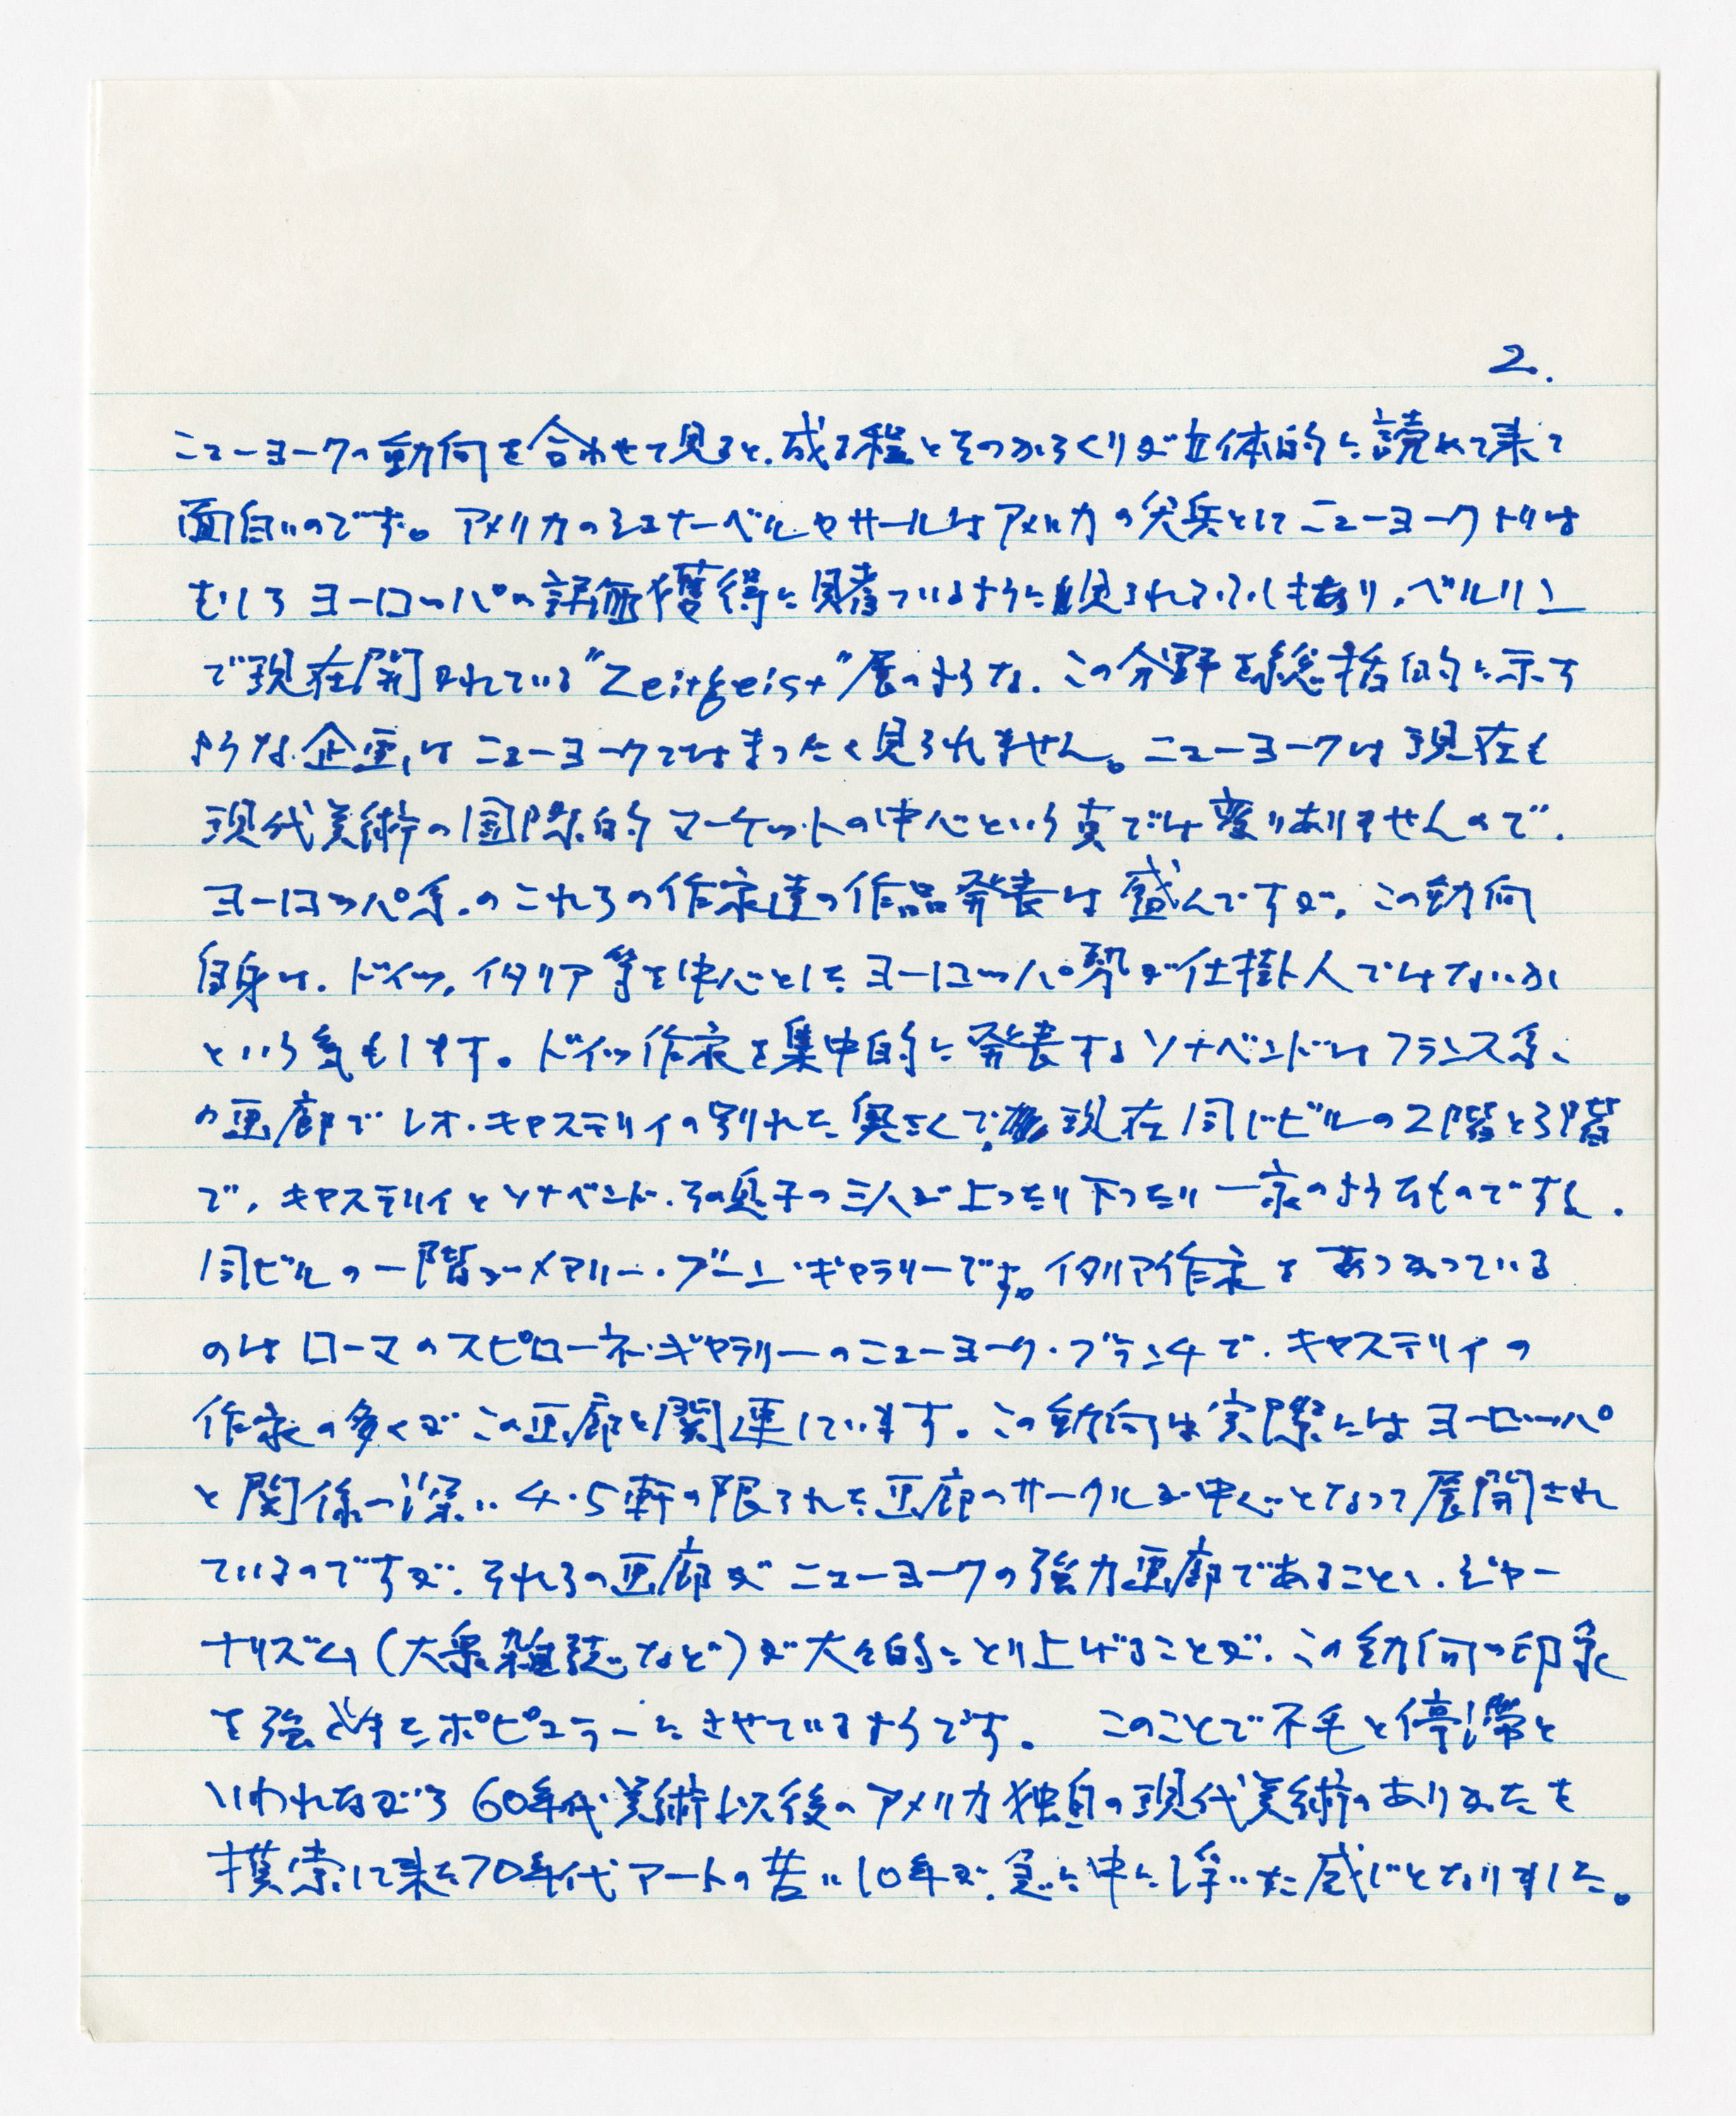 2.
ニューヨークの動向を合わせて見ると、成る程とそのからくりが立体的に読めて来て
面白いのです。アメリカのシュナーベルやサールはアメリカの尖兵としてニューヨークよりは
むしろヨーロッパの評価獲得に賭ているように見られるふしもあり、ベルリン
で現在開かれている"Zeitgeist"展のような、この分野を総括的に示す
ような企画はニューヨークではまったく見られません。ニューヨークは現在も
現代美術の国際的マーケットの中心という点では変りありませんので、
ヨーロッパ系のこれらの作家達の作品発表は盛んですが、この動向
自身は、ドイツ、イタリア等を中心としたヨーロッパ勢が仕掛人ではないか
という気もします。ドイツ作家を集中的に発表するソナベンドはフランス系
の画廊でレオ・キャステリイの別れた奥さんで、現在同じビルの2階と3階
で、キャステリイとソナベンド、その息子の三人が上ったり下ったり一家のようなものですよ。
同ビルの一階がメアリー・ブーン・ギャラリーです。イタリア作家をあつかっている
のはローマのスピローネ・ギャラリーのニューヨーク・ブランチで、キャステリイの
作家の多くがこの画廊と関連しています。この動向は実際にはヨーロッパ
と関係の深い4・5軒の限られた画廊のサークルが中心となって展開され
ているのですが、それらの画廊がニューヨークの強力画廊であることと、ジャー
ナリズム(大衆雑誌など)が大々的にとり上げることが、この動向の印象
を強めまたポピュラーにさせているようです。 このことで不毛と停滞と
いわれながら60年代美術以後のアメリカ独自の現代美術のありかたを
模索して来た70年代アートの苦い10年が、急に中に浮いた感じとなりました。